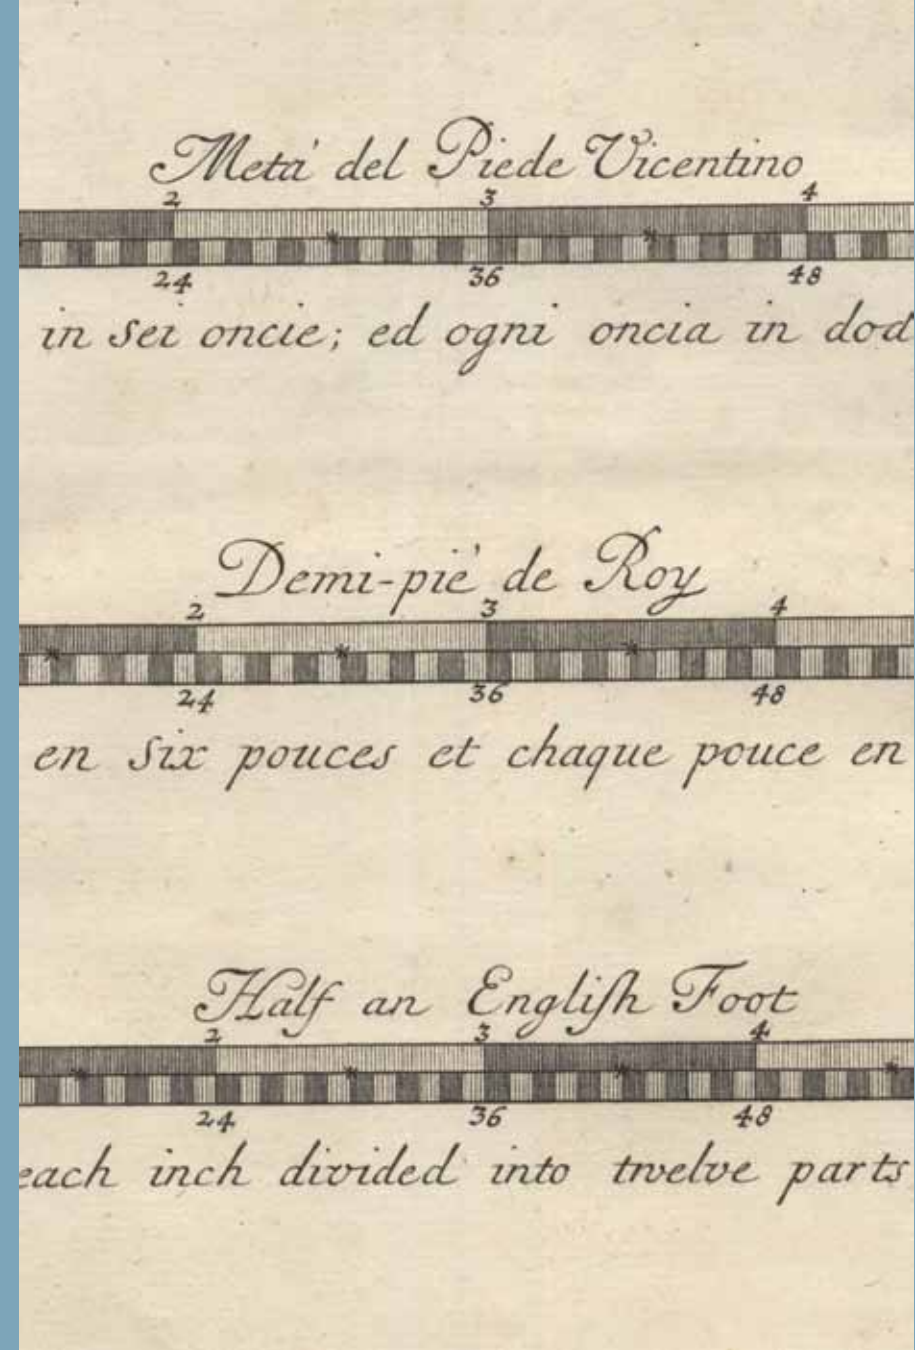 Metà del Piede Vicentino
2 3 4
24 36 48
in sei oncie; ed ogni oncia in dod
Demi-pié de Roy
2 3 4
24 36 48
en six pouces et chaque pouce en
Half an Engliſh Foot
2 3 4
24 36 48
each inch divided into twelve parts